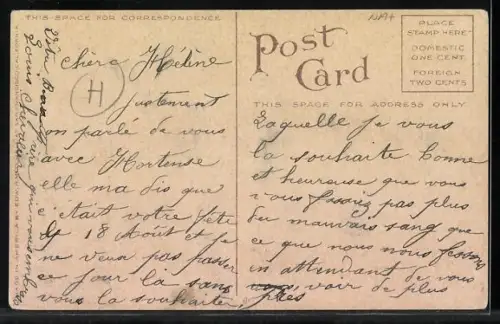 THIS SPACE FOR CORRESPONDENCE
Chère Hélène
H
justement
on parlé de vous
avec Hortense
elle ma dis que
c'était votre fête
le 18 Août et je
ne veux pas passer
ce jour la sans
vous la souhaiter,
Post
Card
1194
PLACE
STAMP HERE
DOMESTIC
ONE CENT
FOREIGN
TWO CENTS
THIS SPACE FOR ADDRESS ONLY
Laquelle je vous
la souhaite bonne
et heureuse que vous
vous fassiez pas plus
du mauvais sang que
ce que nous nous fassons
in attendant de vous
voir de plus
près
Votre
qui vous embrasse
Louis